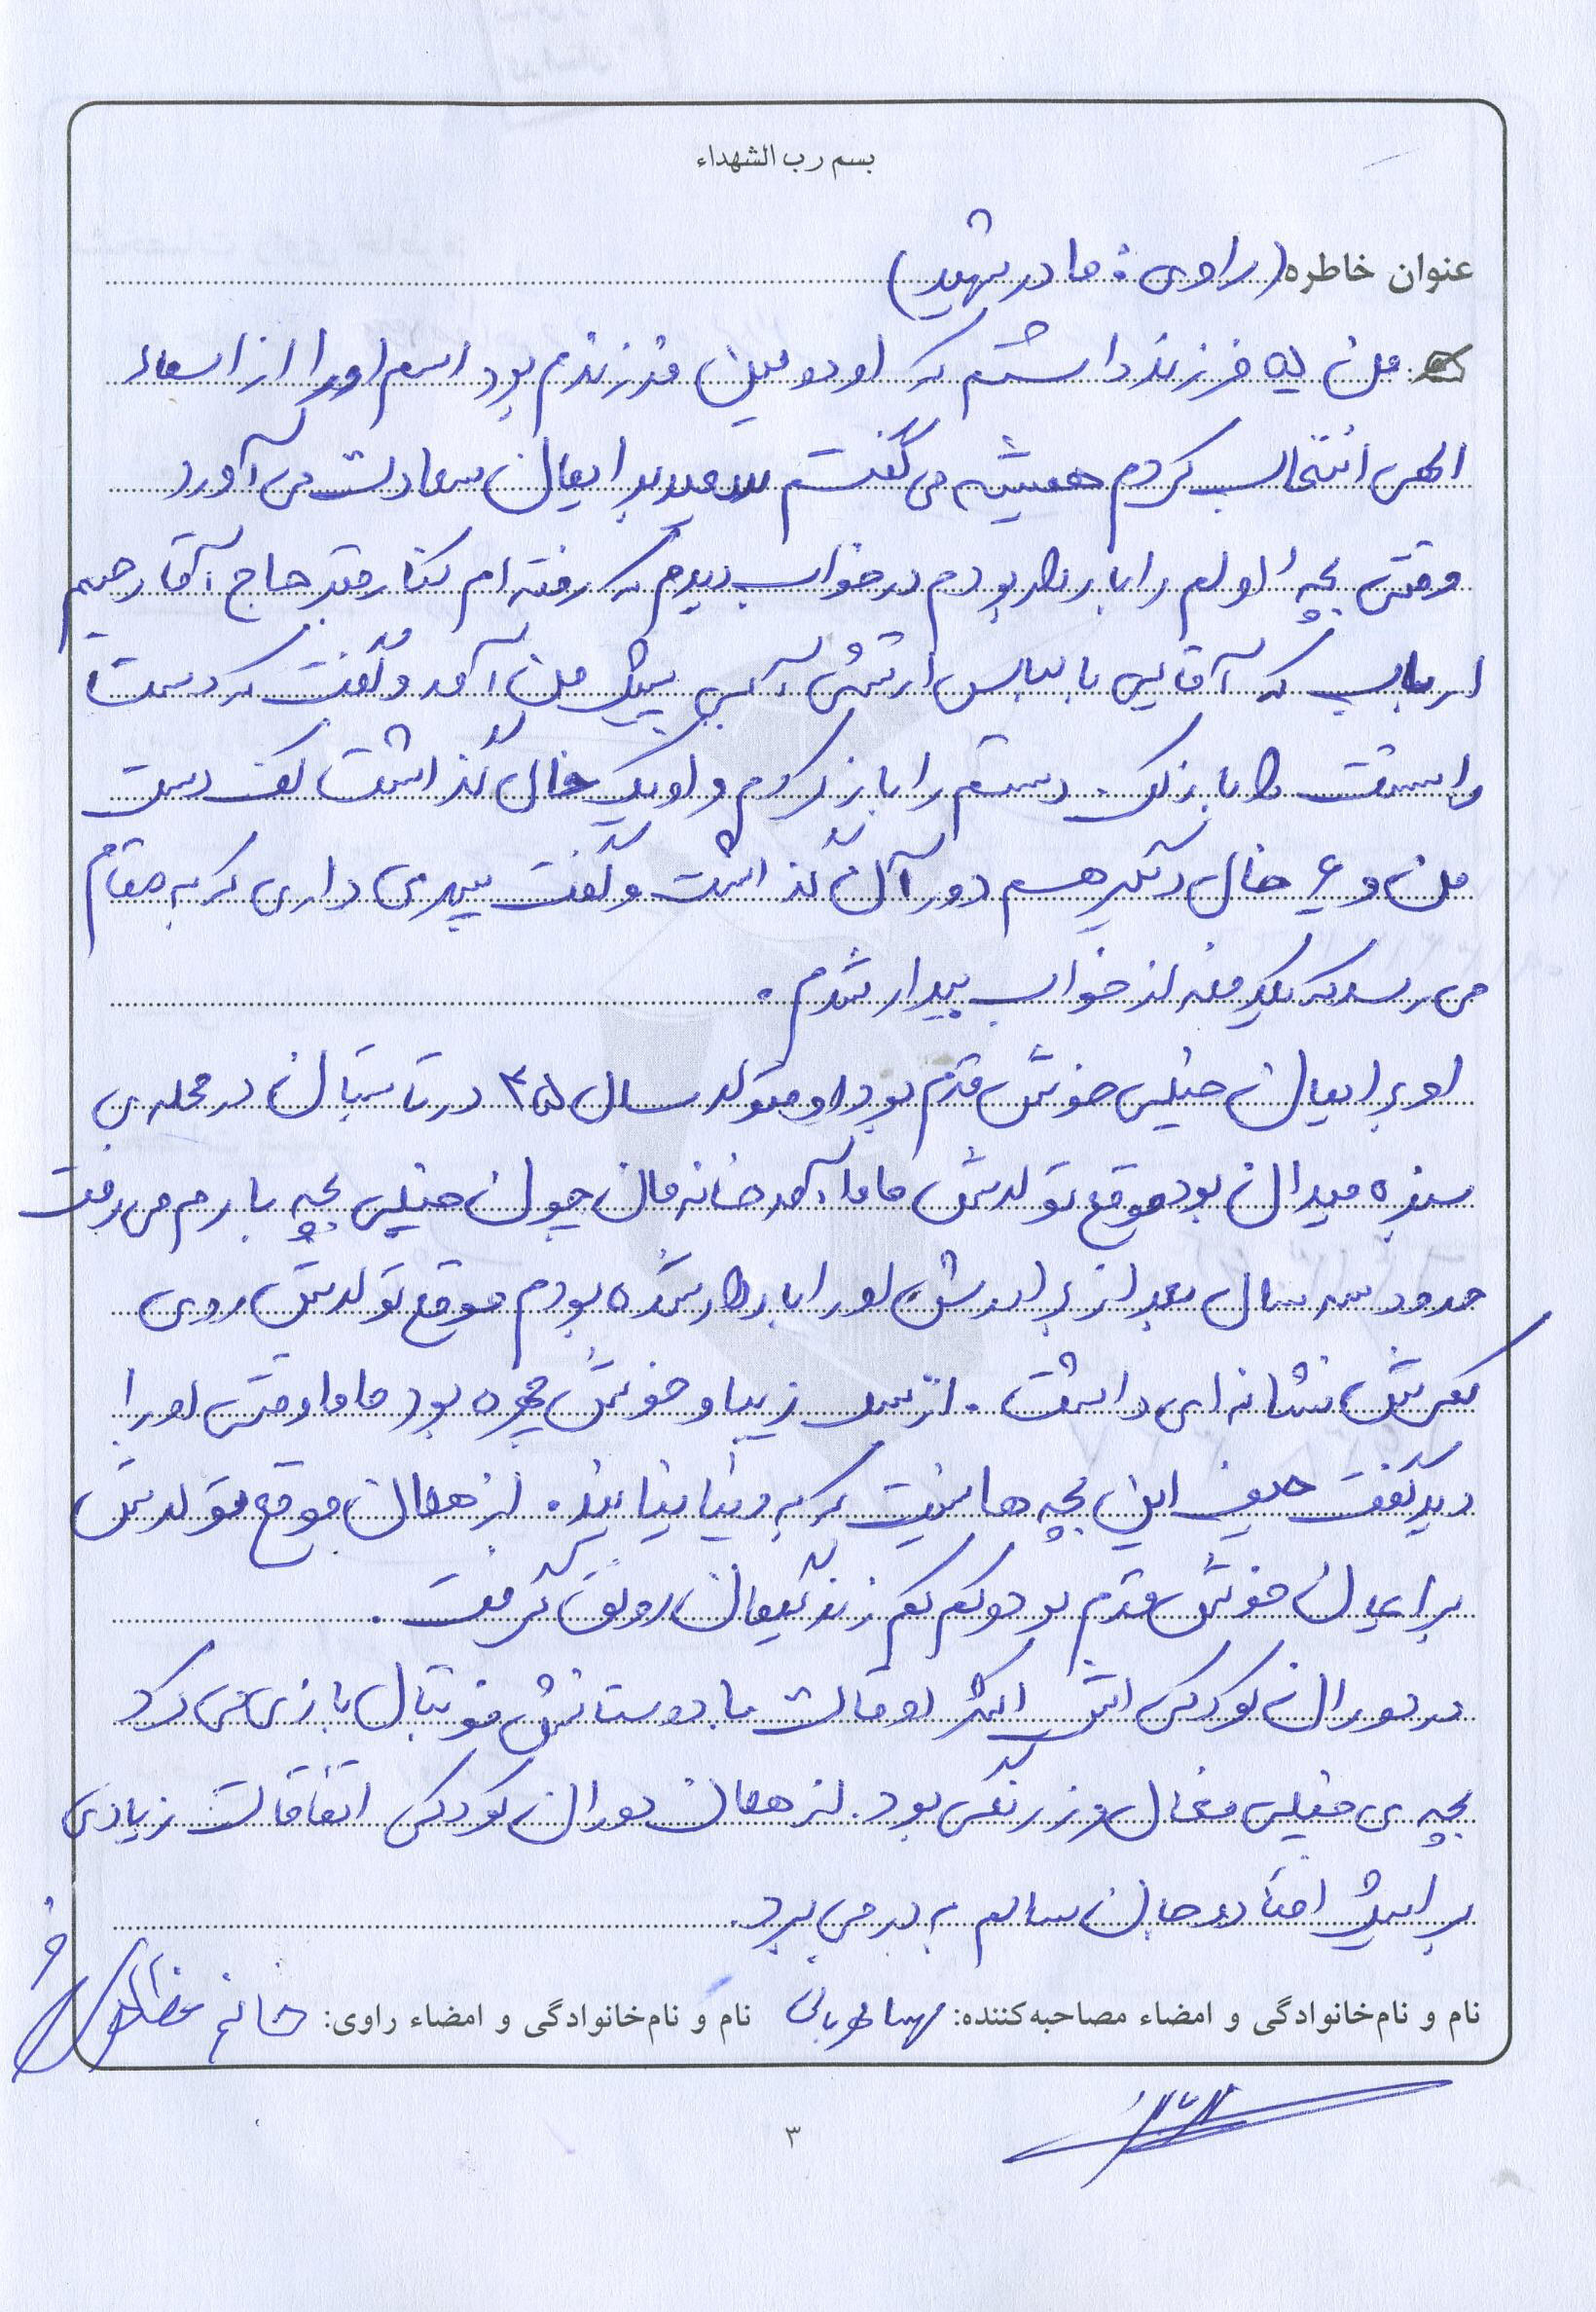 بسم رب الشهداء
عنوان خاطره (راوی: مادر شهید)
من ۵ فرزند داشتم که او دومین فرزندم بود اسم او را از اسماء
الهی انتخاب کردم همیشه می گفتم سعید برایمان سعادت می آورد
وقتی بچه اولم را باردار بودم در خواب دیدم که رفته ام کنار قبر حاج آقا رحیم
ارباب که آقایی با لباس ارتشی آبی پیش من آمد و گفت که دست
راستت را باز کن. دستم را باز کردم و او یک خال گذاشت کف دست
من و ۶ خال دیگر هم دور آن گذاشت و گفت پسری داری که به مقام
می رسد که یکدفعه از خواب بیدار شدم.
او برایمان خیلی خوش قدم بود او متولد سال ۴۵ در تابستان در محله ی
سبزه میدان بود موقع تولدش ماما آمد خانه مان چون خیلی بچه یادم می رفت
حدود سه سال بعد از برادرش او را باردار شده بودم موقع تولدش روی
کمرش نشانه ای داشت. از بس زیبا و خوش چهره بود ماما وقتی او را
دید گفت حیف این بچه ها نیست که به دنیا نیایند. از همان موقع تولدش
برایمان خوش قدم بود و کم کم زندگیمان رونق گرفت.
در دوران کودکی اش اکثر اوقات با دوستانش فوتبال بازی می کرد
بچه ی خیلی فعال و زرنگی بود. از همان دوران کودکی اتفاقات زیادی
برایش افتاد و جان سالم به در می برد.
نام و نام‌خانوادگی و امضاء مصاحبه‌کننده: نام و نام‌خانوادگی و امضاء راوی: خانم
۳